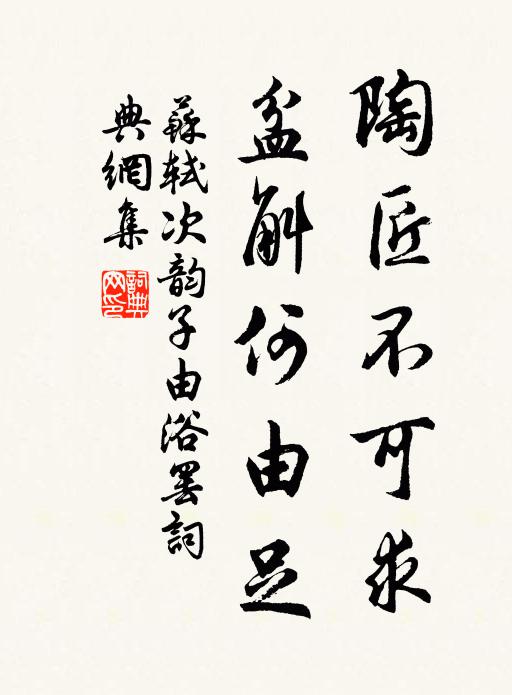 陶匠不可求
盆斛何由足
蘇軾次韵子由浴罢詞
典網集
詞典网印